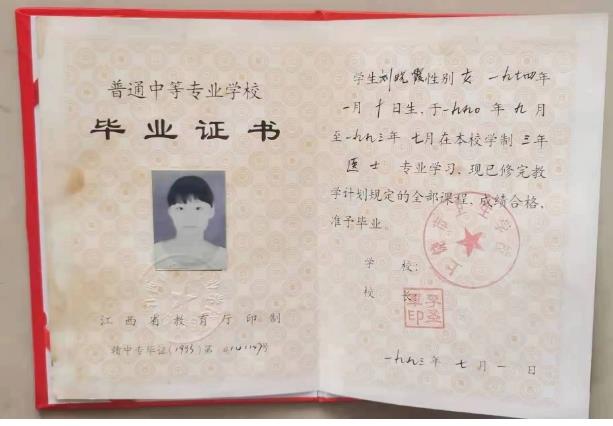 普通中等专业学校
毕业证书
江西省教育厅印制
赣中专毕证(1993)第 号
学生刘晓霞性别 女 一九七四年
一月十日生,于一九九〇年九月
至一九九三年 七月在本校学制 三年
医士 专业学习,现已修完教
学计划规定的全部课程,成绩合格,
准予毕业。
学 校:
校 长
一九九三年 七月 一日